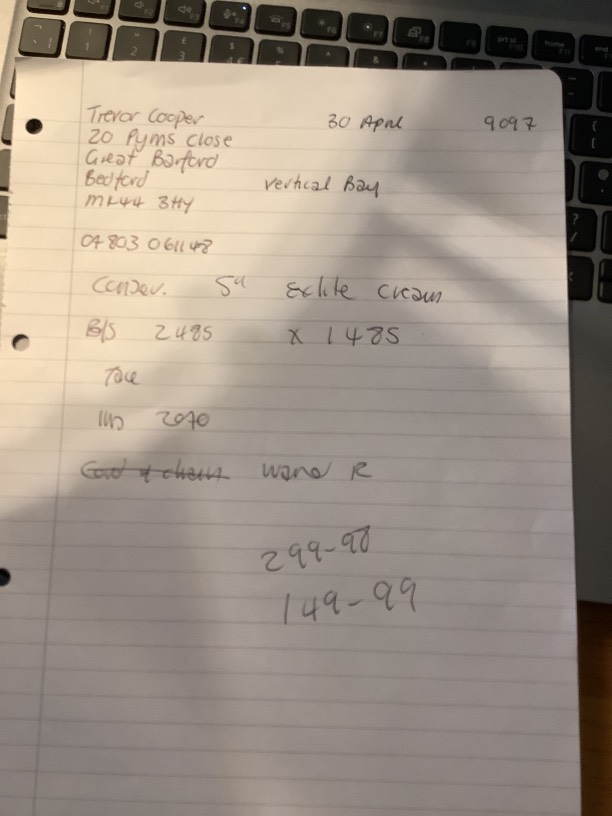 Trevor Cooper 30 April 9097
20 Pyms Close
Great Barford
Bedford Vertical Bay
MK44 3HY
07803 061148
5" Exlite Cream
B/S 2485 x 1485
2070
Wand R
299-98
149-99